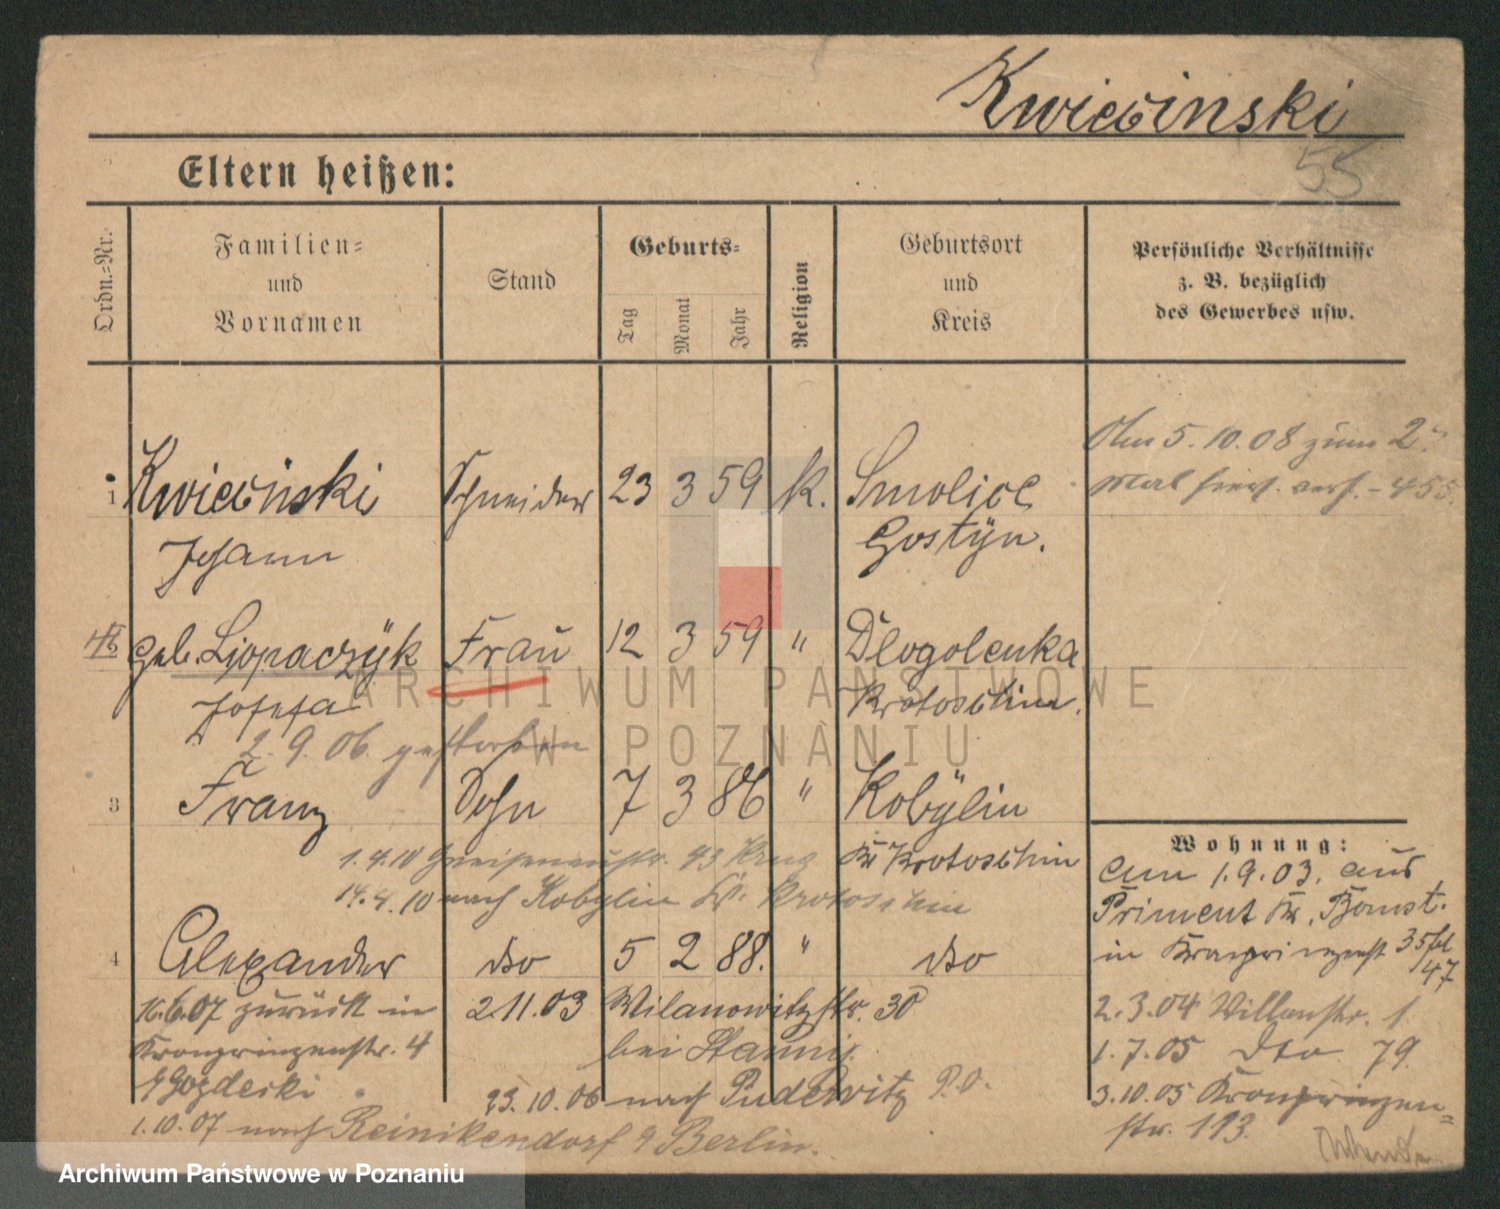 Kwiecinski
55
Eltern heißen:
Ordn.=Nr.
Familien=
und
Vornamen
Stand
Geburts=
Tag
Monat
Jahr
Religion
Geburtsort
und
Kreis
Persönliche Verhältnisse
z. B. bezüglich
des Gewerbes usw.
Am 5.10.08 zum 2.
Mal hier. verh. - 455.
1 Kwiecinski Schneider 23 3 59 k. Smolice
Johann Gostÿn.
geb. Frau 12 3 59 " Dlogolenka
Josefa Krotoschin.
2.9.06. gestorben
3 Franz Sohn 7 3 86 " Kobÿlin
1.4.10 Gneisenaustr. 43 Kr Krotoschin
14.4.10 nach Kobylin Kr. Krotoschin
4 Alexander dto 5 2 88. " dto
16.6.07 zurück in
Kronprinzenstr. 4
2.11.03 Wilanowitzstr. 30
bei
23.10.06 nach Pudewitz P.O.
1.10.07 nach Reinikendorf b Berlin.
Wohnung:
am 1.9.03. aus
Priment Kr. Bomst.
in Kronprinzenst 35
47
2.3.04 Villenstr. 1
1.7.05 dto 79.
3.10.05 Kronprinzen=
str. 193.
ARCHIWUM PAŃSTWOWE
W POZNANIU
Archiwum Państwowe w Poznaniu